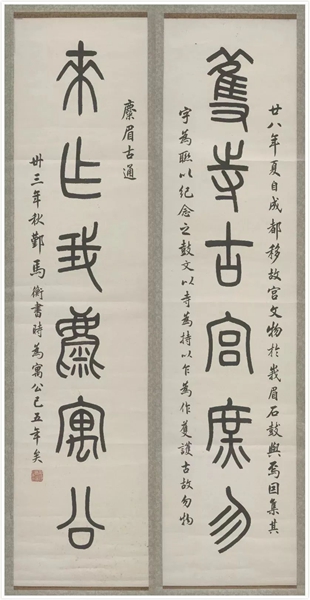 廿八年夏自成都移故宮文物於峩眉石鼓與焉因集其
蒦寺古宮庶勿
字為聯以紀念之鼓文以寺為持以乍為作蒦護古故勿物
麋眉古通
來乍我麋寓公
卅三年秋鄞馬衡書時為寓公已五年矣